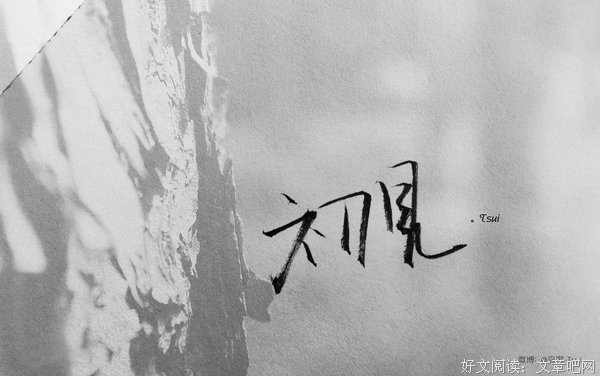 初見
。Tsui
好文阅读：文章吧网